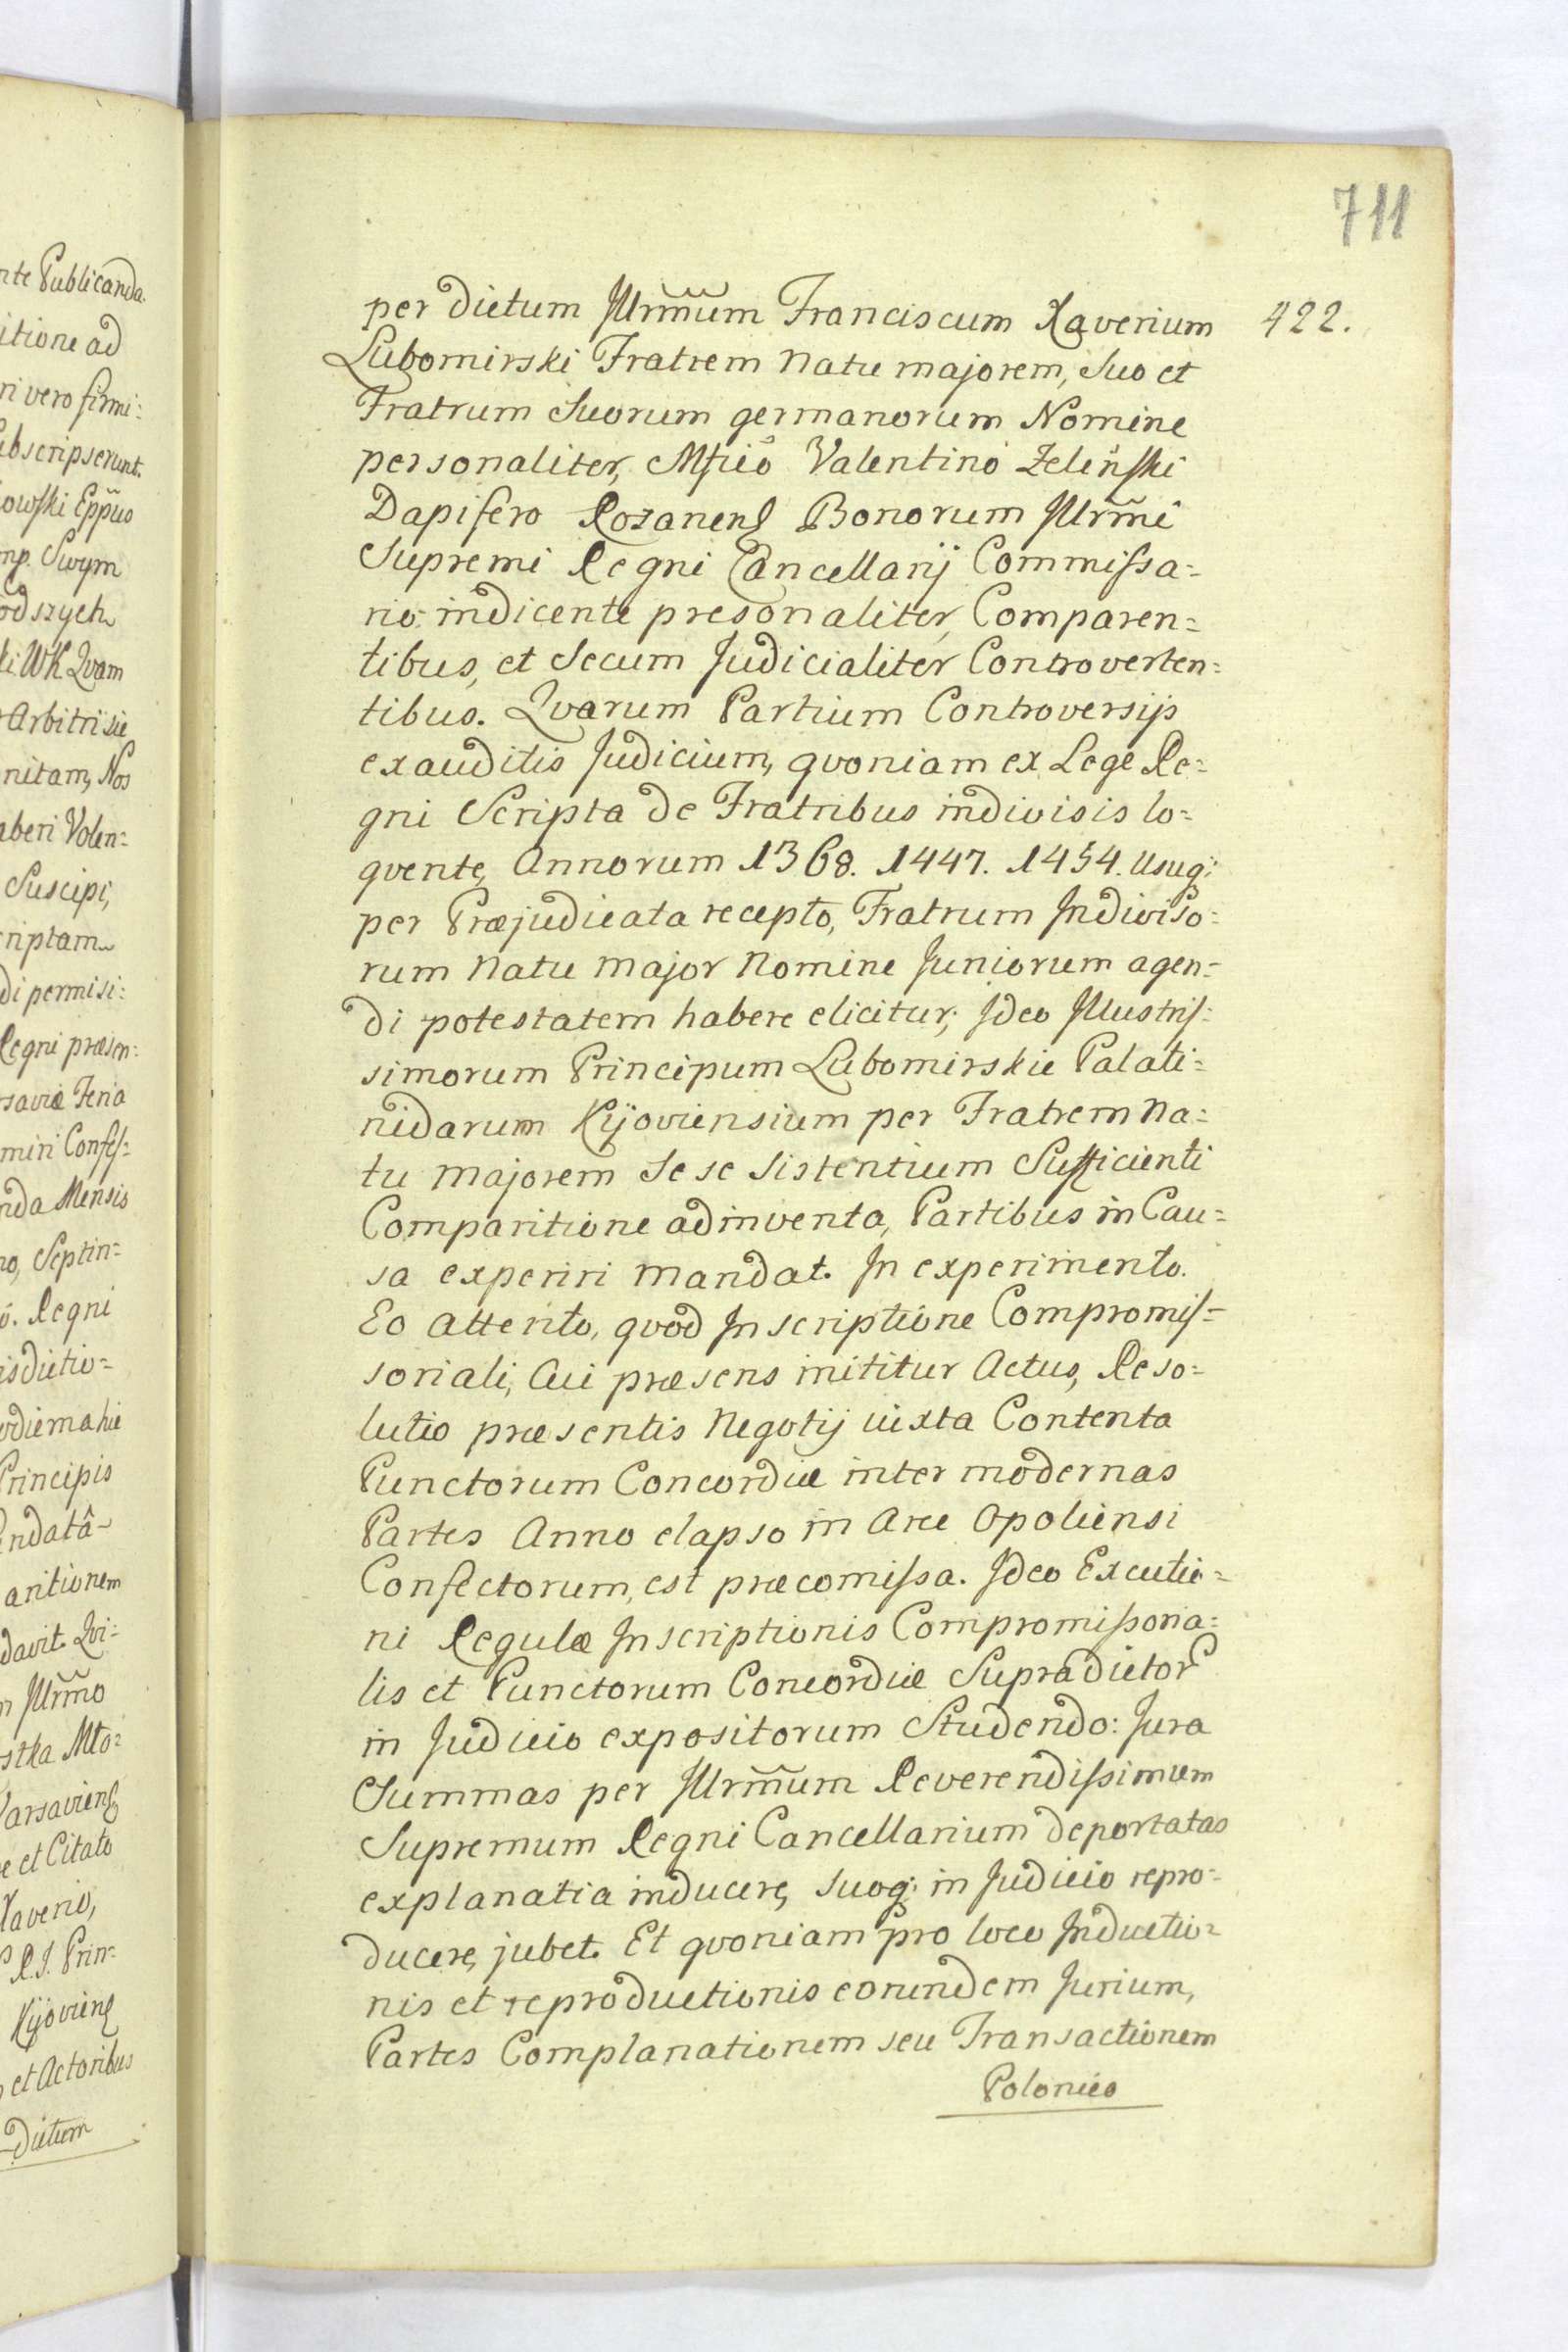 nte Publicanda.
itione ad
ri vero firmi:
ubscripserunt.
owski Eppũo
mp. Swym
odszych
ki WK Qvam
Arbitrisie
nitam, Nos
aberi Volen=
Suscipi,
criptam
di permisi:
Regni præsen:
rsaviæ Feria
miri Confes:
nda Mensis
no, Septin=
ô. Regni
isdictio=
odiernahie
Principis
endatâ
aritionem
davit. Qvi:
m Jllrm̃o
stka Mło:
Varsaviens
e et Citato
Xaverio,
R.I. Prin:
Kijoviens
et Actoribus
Dictum
711
422.
per dictum Jllrm̃um Franciscum Xaverium
Lubomirski Fratrem Natu majorem, Suo et
Fratrum Suorum germanorum Nomine
personaliter, Mficõ Valentino Zeleński
Dapifero Rozanens Bonorum Jllrm̃i
Supremi Regni Cancellarij Commissa=
rio indicente presonaliter, Comparen=
tibus, et Secum Judicialiter Controverten=
tibus. Qvarum Partium Controversijs
exauditis Judicium, qvoniam ex Lege Re=
gni Scripta de Fratribus indivisis lo=
qvente, Annorum 1368. 1447. 1454. Usuq:
per Præjudicata recepto, Fratrum Jndiviso=
rum Natu Major Nomine Juniorum agen=
di potestatem habere elicitur; Jdeo Jllustris=
simorum Principum Lubomirskie Palati=
nidarum Kijoviensium per Fratrem Na=
tu Majorem Se se Sistentium Sufficienti
Comparitione adinventa, Partibus in Cau=
sa experiri Mandat. Jn experimento.
Eo Attento, qvod Jnscriptione Compromis=
soriali, Cui præsens inititur Actus, Reso=
lutio præsentis Negotij iuxta Contenta
Punctorum Concordiæ inter modernas
Partes Anno elapso in Arce Opoliensi
Confectorum, est præcomissa. Jdeo Excutio=
ni Regulæ Jnscriptionis Compromissoria=
lis et Punctorum Concordiæ Supradictor
in Judicio expositorum Studendo: Jura
Summas per Jllrm̃um Reverendissimum
Supremum Regni Cancellarium deportatas
explanatia inducere, Suoq: in Judicio repro=
ducere, jubet. Et qvoniam pro loco Jnductio=
nis et reproductionis eorundem Jurium,
Partes Complanationem seu Transactionem
Polonico